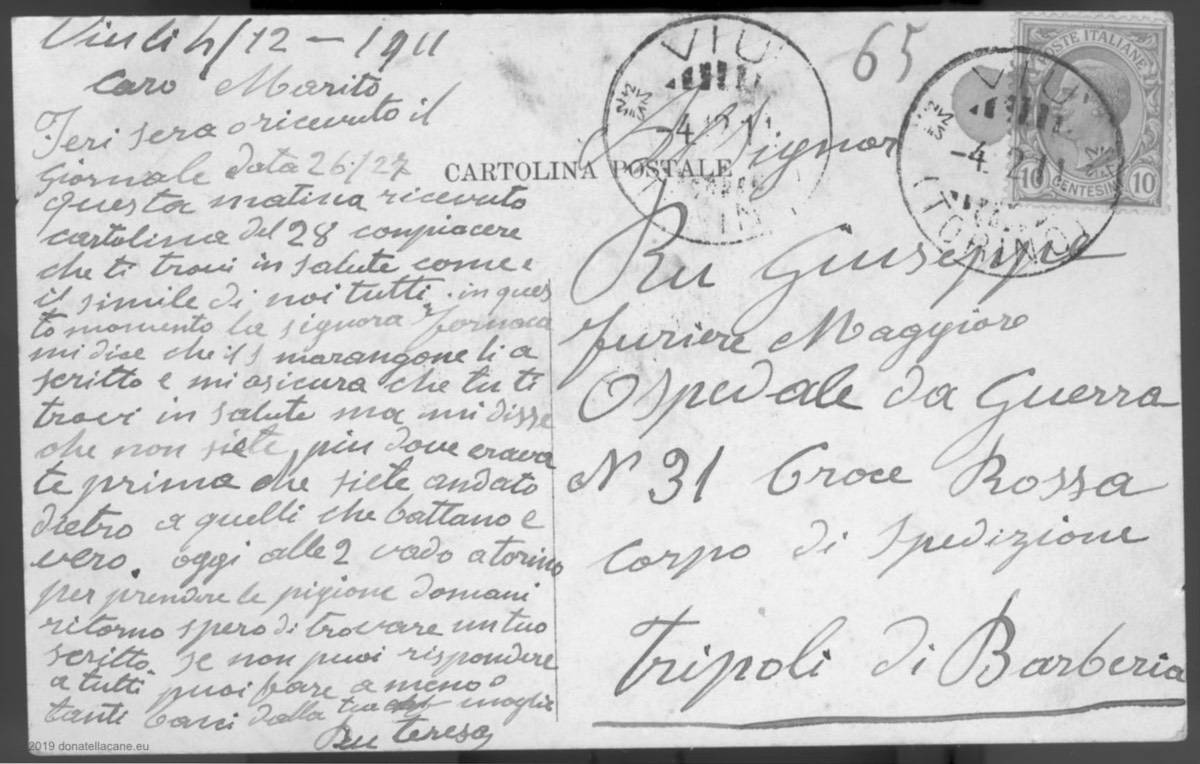 Viu li 4/12 - 1911
Caro Marito
Ieri sera o ricevuto il
Giornale data 26/27
questa matina ricevuto
cartolina del 28 conpiacere
che ti trovi in salute come e
il simile di noi tutti. in ques
to momento la signora Fornaca
mi dice che il s marangone li a
scritto e mi asicura che tu ti
trovi in salute ma mi disse
che non siete piu dove erava
te prima che siete andato
dietro a quelli che battano e
vero. oggi alle 2 vado a torino
per prendere le pigione domani
ritorno spero di trovare un tuo
scritto. se non puoi rispondere
a tutti puoi fare a meno
tanti baci dalla tua moglie
Ru teresa
CARTOLINA POSTALE
65
VIU
-4 12 11
VIU
-4 12 11
(TORINO)
POSTE ITALIANE
10
CENTESIMI
10
Signor
Ru Giuseppe
furiere Maggiore
Ospedale da Guerra
N 31 Croce Rossa
corpo di spedizione
Tripoli di Barberia
2019 donatellacane.eu